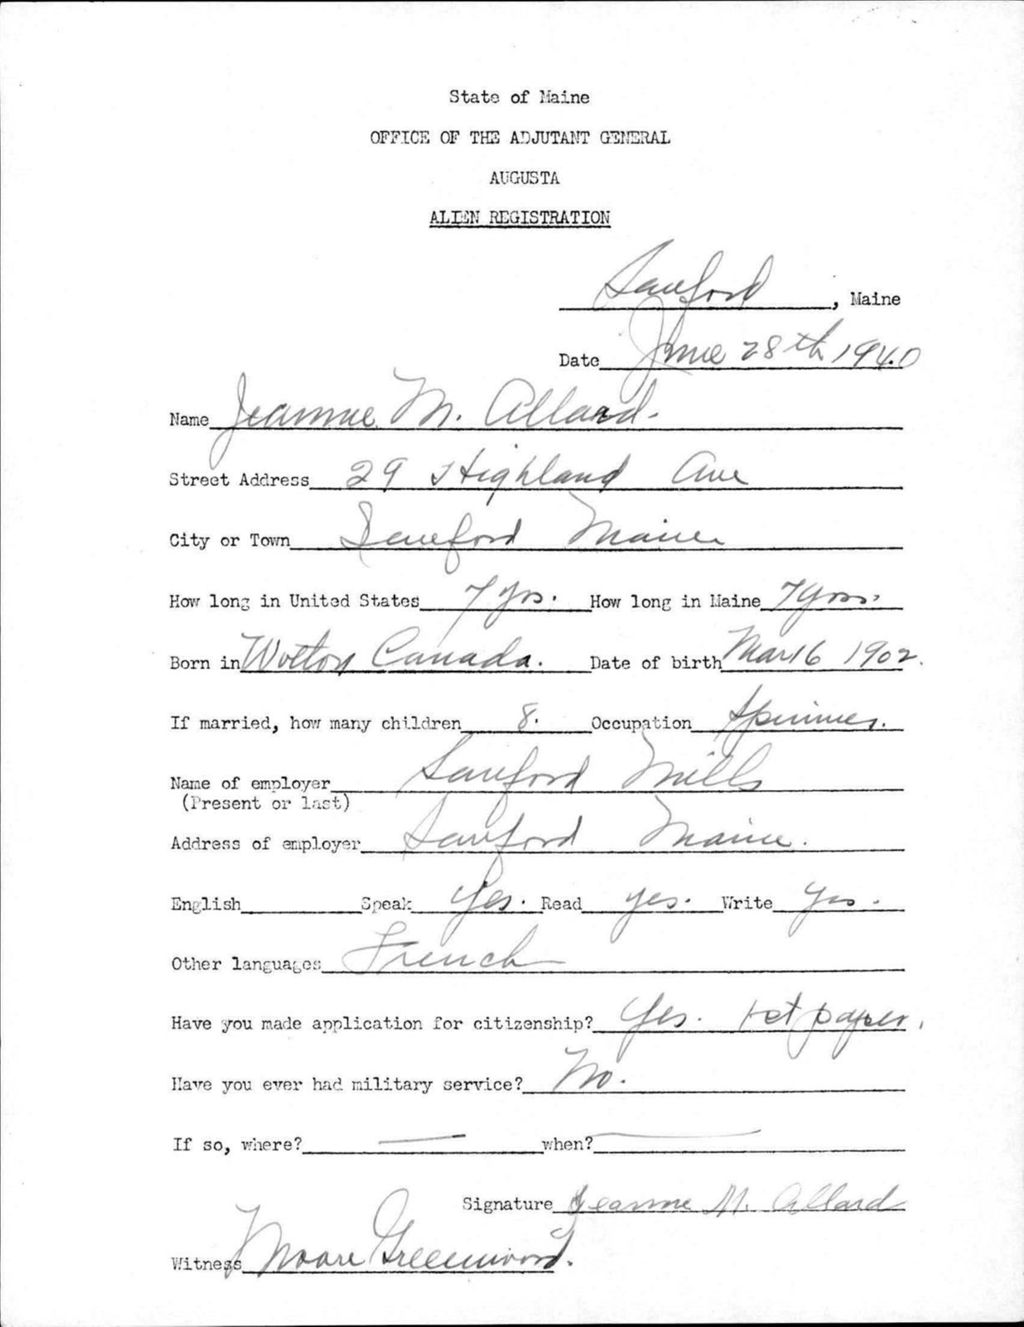 State of Maine
OFFICE OF THE ADJUTANT GENERAL
AUGUSTA
ALIEN REGISTRATION
Sanford, Maine
Date June 28th 1940
Name Jeannne M. Allard.
Street Address 29 Highland Ave
City or Town Sanford Maine
How long in United States 7 yrs. How long in Maine 7 yrs.
Born in Wotton Canada. Date of birth Mar 16 1902.
If married, how many children 8. Occupation Spinner.
Name of employer Sanford Mills
(Present or last)
Address of employer Sanford Maine.
English Speak Yes. Read yes. Write Yes.
Other languages French
Have you made application for citizenship? Yes. 1st paper.
Have you ever had military service? No.
If so, where? — when? —
Signature Jeanne M. Allard
Witness Moore Greenwood.